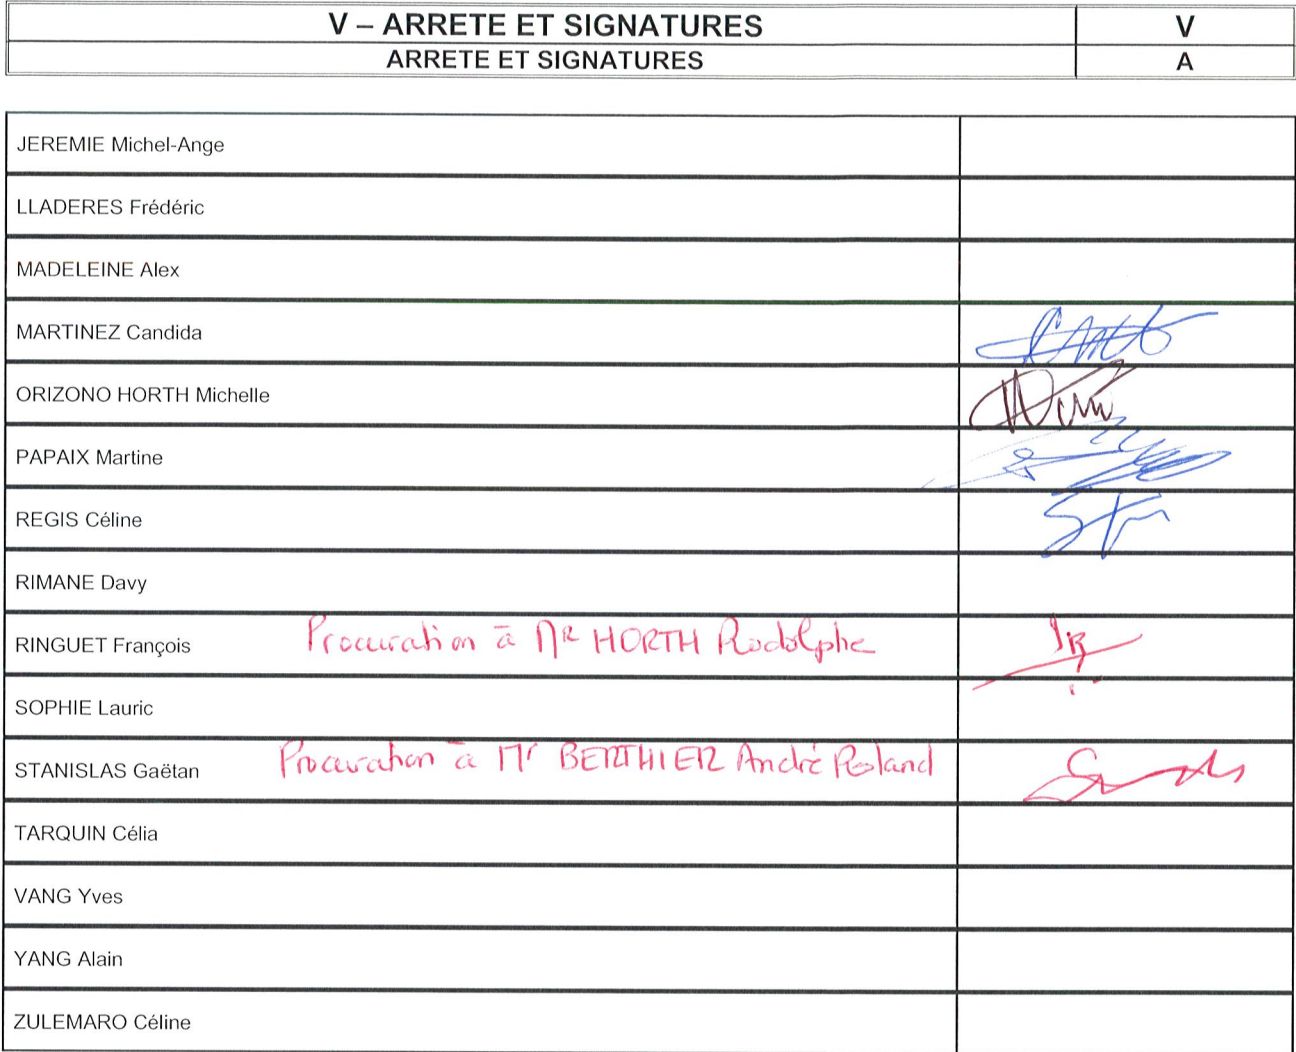 V – ARRETE ET SIGNATURES V
ARRETE ET SIGNATURES A
JEREMIE Michel-Ange
LLADERES Frédéric
MADELEINE Alex
MARTINEZ Candida
ORIZONO HORTH Michelle
PAPAIX Martine
REGIS Céline
RIMANE Davy
RINGUET François Procuration à Mr HORTH Rodolphe
SOPHIE Lauric
STANISLAS Gaëtan Procuration à Mr BERTHIER André Roland
TARQUIN Célia
VANG Yves
YANG Alain
ZULEMARO Céline